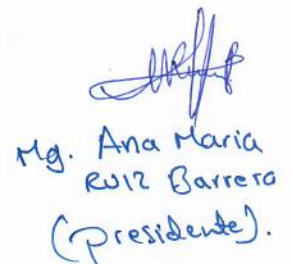 Mg. Ana Maria
RUIZ Barrero
(presidente).